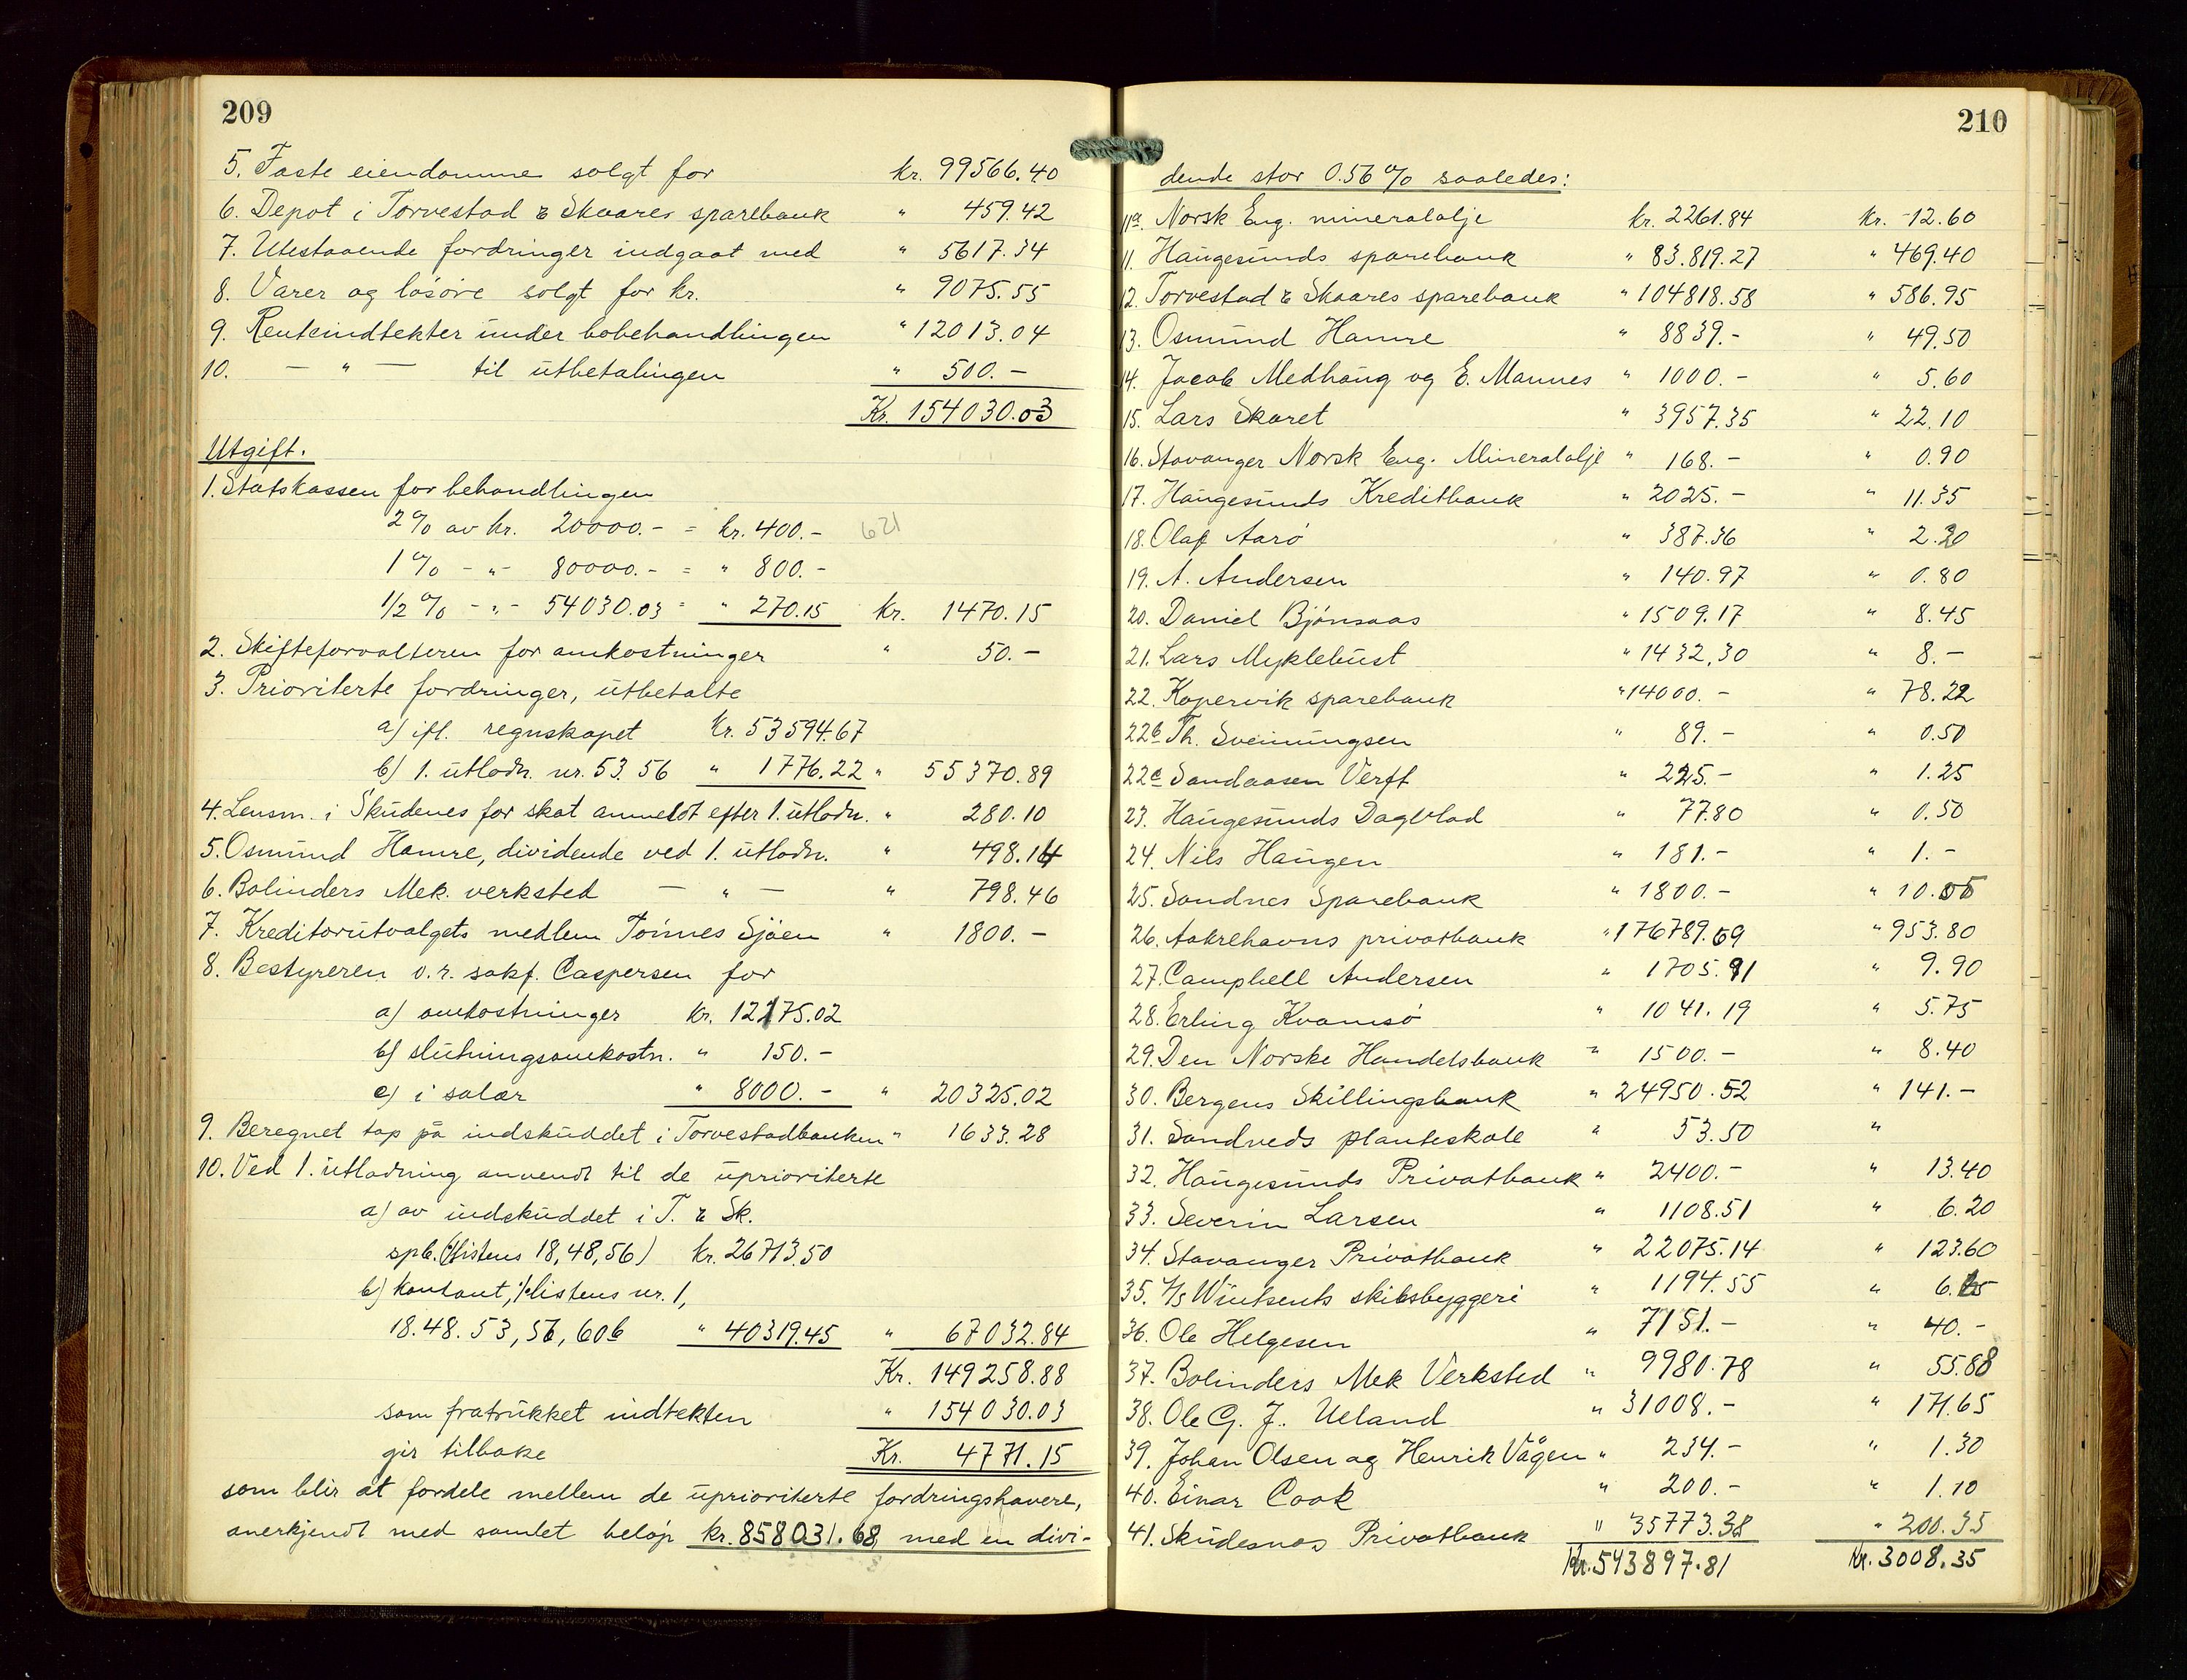 209
5. Faste eiendomme solgt for kr. 99566.40
6. Depot i Torvestad & Skaares sparebank " 459.42
7. Utestaaende fordringer indgaat med " 5617.34
8. Varer og løsøre solgt for kr. " 9075.55
9. Renteindtekter under bobehandlingen " 12013.04
10. — " — til utbetalingen " 500.-
Kr. 154030.03
Utgift.
1. Statskassen for behandlingen
2% av kr. 20000.- = kr. 400.- 621
1% - " - 80000.- = " 800.-
1/2% - " - 54030.03 = " 270.15 kr. 1470.15
2. Skifteforvalteren for omkostninger " 50.-
3. Prioriterte fordringer, utbetalte
a) ifl. regnskapet Kr. 53594.67
b) 1. utlodn. nr. 53. 56 " 1776.22 " 55370.89
4. Lensm. i Skudenes for skat anmeldt efter 1. utlodn. " 280.10
5. Osmund Hamre, dividende ved 1. utlodn. " 498.14
6. Bolinders Mek. verksted — " — " 798.46
7. Kreditorutvalgets medlem Tønnes Sjøen " 1800.-
8. Bestyreren o.r. sakf. Caspersen for
a) omkostninger kr. 12175.02
b) slutningsomkostn. " 150.-
c) i salær " 8000.- " 20325.02
9. Beregnet tap på indskuddet i Torvestadbanken " 1633.28
10. Ved 1. utlodning anvendt til de uprioriterte
a) av indskuddet i T. & Sk.
spb. (listens 18, 48, 56) kr. 26713.50
b) kontant, listens nr. 1,
18. 48. 53, 56, 60b " 40319.45 " 67032.84
Kr. 149258.88
som fratrukket indtekten " 154030.03
gir tilbake Kr. 4771.15
som blir at fordele mellem de uprioriterte fordringshavere,
anerkjendt med samlet beløp kr. 858031.68 med en divi-
210
dende stor 0.56% saaledes:
11a. Norsk Eng. mineralolje kr. 2261.84 kr. 12.60
11. Haugesunds sparebank " 83.819.27 " 469.40
12. Torvestad & Skaares sparebank " 104818.58 " 586.95
13. Osmund Hamre " 8839.- " 49.50
14. Jacob Medhaug og E. Mannes " 1000.- " 5.60
15. Lars Skaret " 3957.35 " 22.10
16. Stavanger Norsk Eng. Mineralolje " 168.- " 0.90
17. Haugesunds Kreditbank " 2025.- " 11.35
18. Olaf Aarø " 387.36 " 2.20
19. A. Andersen " 140.97 " 0.80
20. Daniel Bjønsaas " 1509.17 " 8.45
21. Lars Myklebust " 1432,30 " 8.-
22. Kopervik sparebank " 14000.- " 78.22
22b Th. Sveinungsen " 89.- " 0.50
22c Sandaasen Verft " 225.- " 1.25
23. Haugesunds Dagblad " 77.80 " 0.50
24. Nils Haugen " 181.- " 1.-
25. Sandnes Sparebank " 1800.- " 10.05
26. Aakrehavns privatbank " 176789.69 " 953.80
27. Campbell Andersen " 1705.91 " 9.90
28. Erling Kvamsø " 1041.19 " 5.75
29. Den Norske Handelsbank " 1500.- " 8.40
30. Bergens Skillingsbank " 24950.52 " 141.-
31. Sandveds planteskole " 53.50 "
32. Haugesunds Privatbank " 2400.- " 13.40
33. Severin Larsen " 1108.51 " 6.20
34. Stavanger Privatbank " 22075.14 " 123.60
35. A/S Wintsents skibsbyggeri " 1194.55 "
36. Ole Helgesen " 7151.- " 40.-
37. Bolinders Mek Verksted " 9980.78 " 55.88
38. Ole G. J. Ueland " 31008.- " 171.65
39. Johan Olsen og Henrik Vågen " 234.- " 1.30
40. Einar Cook " 200.- " 1.10
41. Skudesnes Privatbank " 35773.38 " 200.35
Kr. 543897.81 Kr. 3008.35